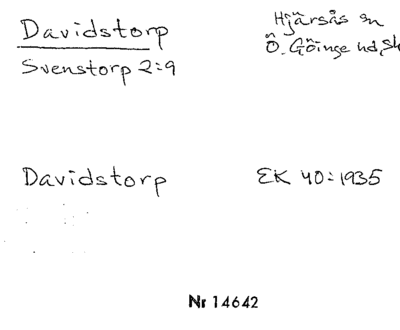 Davidstorp
Hjärsås sn
Svenstorp 2:9
Ö. Göinge hd, Sk
Davidstorp
EK 40:1935
Nr 14642